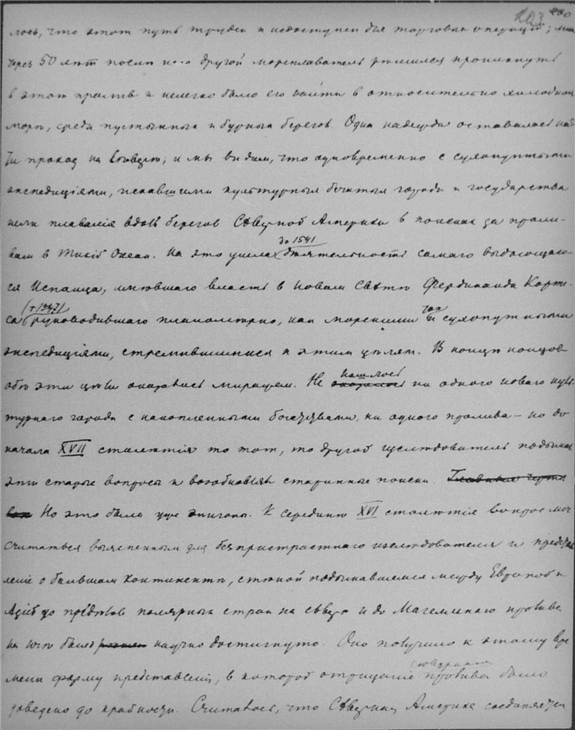 лось, что этот путь труден и недоступен для торговых операций;
через 50 лет после него другой мореплаватель решился проникнуть
в этот пролив и нелегко было его найти в относительно холодном
море, среди пустынных и бурных берегов. Одна надежда оставалась най
ти проход на ; и мы видим, что одновременно с сухопутными
экспедициями, искавшими культурные богатые города и государства
шли плавания вдоль берегов Сѣверной Америки в поисках за проли-
вами в Тихій Океан. На это ушла до 1541 дѣятельность самаго выдающаго-
ся Испанца, имѣвшаго власть в Новом Свѣтѣ Фердинанда Корте-
са руководившаго планомѣрно, как морскими так и сухопутными
экспедиціями, стремившимися к этим цѣлям. В концѣ концов
обѣ эти цѣли оказались миражем. Не нашлось ни одного новаго куль-
турнаго города с накопленными богатствами, ни одного пролива — но до
начала XVII столѣтія то тот, то другой изслѣдователь поднимал
эти старые вопросы и возобновлял старинные поиски.
Но это были уже эпигоны. К середине XVI столѣтія вопрос мог
считаться выясненным для безпристрастнаго изслѣдователя и
о большом континентѣ, стѣной подымавшемся между Европой и
Азіей до предѣлов полярных стран на сѣверѣ и до Магелланова пролива
на югѣ было научно достигнуто. Оно получило к этому вре
мени форму представленій, в которой отрицание пролива было
доведено до крайности. Считалось, что Сѣверная Америка соединяется